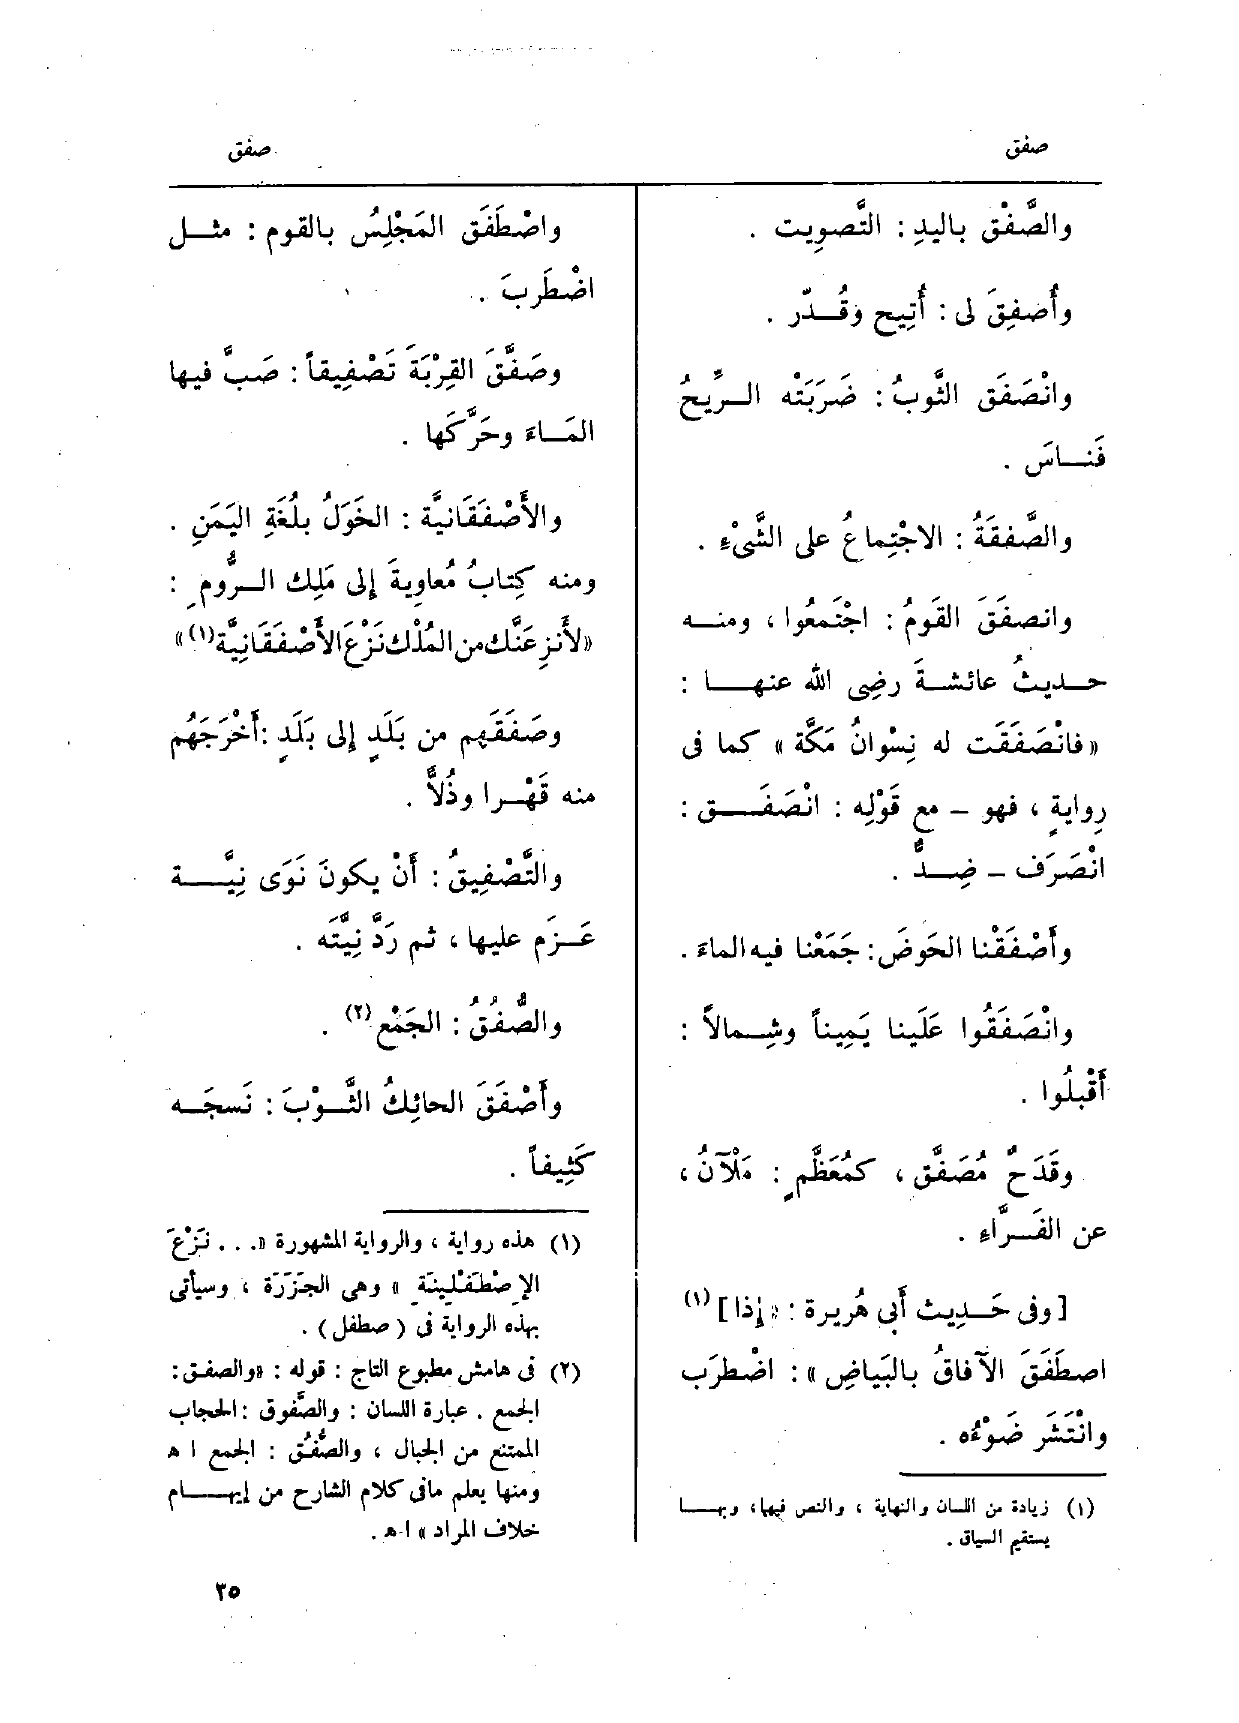 صفق
صفق
والصَّفْق باليدِ : التَّصوِيت .
وأُصفِقَ لى : أُتِيح وَقُدّر .
وانْصَفَق الثَّوبُ : ضَرَبَتْه الرِّيحُ
فَناسَ .
والصَّفقَةُ : الاجْتِماعُ على الشَّىْءِ .
وانصفَقَ القَومُ : اجْتَمعُوا ، ومنه
حديثُ عائشةَ رضِى الله عنها :
«فانْصَفَقَت له نِسْوانُ مَكَّة » كما فى
رِوايةٍ ، فهو – مع قَوْلِه : انْصَفَق :
انْصَرَف – ضِدٌّ .
وأَصْفَقْنا الحَوضَ : جَمَعْنا فيه الماءَ .
وانْصَفَقُوا عَلَينا يَمِيناً وشِمالاً :
أَقْبلُوا .
وقَدَحٌ مُصَفَّق ، كمُعَظَّمٍ : مَلْآنُ ،
عن الفَرَّاءِ .
[وفى حَدِيث أَبى هُريرة : « إِذا](١)
اصطَفَقَ الآفاقُ بالبَياضِ » : اضْطرَب
وانْتَشَر ضَوْءُه .
(١) زيادة من اللسان والنهاية ، والنص فيها، وبها
يستقيم السياق .
واصْطَفَق المَجْلِسُ بالقوم : مثل
اضْطَربَ .
وصَفَّقَ القِرْبَةَ تَصْفِيقاً : صَبَّ فيها
المَاءَ وحَرَّكَها .
والأَصْفَقَانيَّة : الخَوَلُ بلُغَةِ اليَمَنِ .
ومنه كِتابُ مُعاويةَ إلى مَلِك الرُّومِ :
«لأَنزِعَنَّك من المُلْك نَزْعَ الأَصْفَقَانِيَّة(١)»
وصَفَقَهم من بَلَدٍ إلى بَلَدٍ : أَخْرَجَهُم
منه قَهْرا وذُلاًّ .
والتَّصْفِيقُ : أَنْ يكونَ نَوَى نِيَّة
عَزَم عليها ، ثم رَدَّ نِيَّتَه .
والصُّفُقُ : الجَمْع(٢) .
وأَصْفَقَ الحائِكُ الثَّوْبَ : نَسجَه
كَثِيفاً .
(١) هذه رواية ، والرواية المشهورة «. . . نَزْعَ
الإِصْطَفْلِينَةِ » وهى الجَزَرَة ، وسيأتى
بهذه الرواية فى ( صطفل ) .
(٢) فى هامش مطبوع التاج : قوله : «والصفق :
الجمع . عبارة اللسان : والصَّفوق : الحجاب
الممتنع من الجبال ، والصُّفُق : الجمع ا ه
ومنها يعلم مافى كلام الشارح من إيهام
خلاف المراد » ا ه .
٢٥